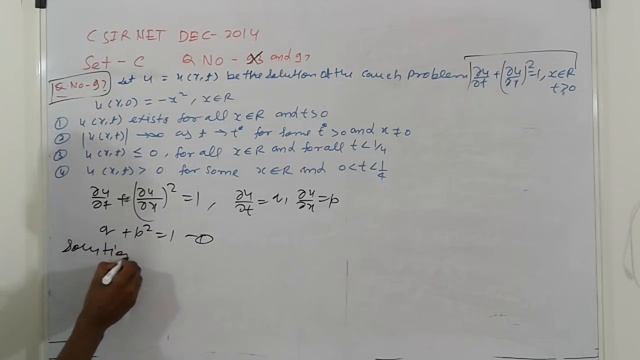 CSIR NET DEC-2014
Set-C Q NO - and 97
Q NO-97 Let u = u(x,t) be the solution of the Cauchy Problem ∂u/∂t + (∂u/∂x)² = 1, x∈R
t≥0
u(x,0) = -x², x∈R
① u(x,t) exists for all x∈R and t>0
② |u(x,t)| → ∞ as t → t* for some t*>0 and x≠0
③ u(x,t) ≤ 0, for all x∈R and for all t<1/4
④ u(x,t) > 0 for some x∈R and 0<t<1/4
∂u/∂t + (∂u/∂x)² = 1, ∂u/∂t = q, ∂u/∂x = p
q + p² = 1 —①
Solution